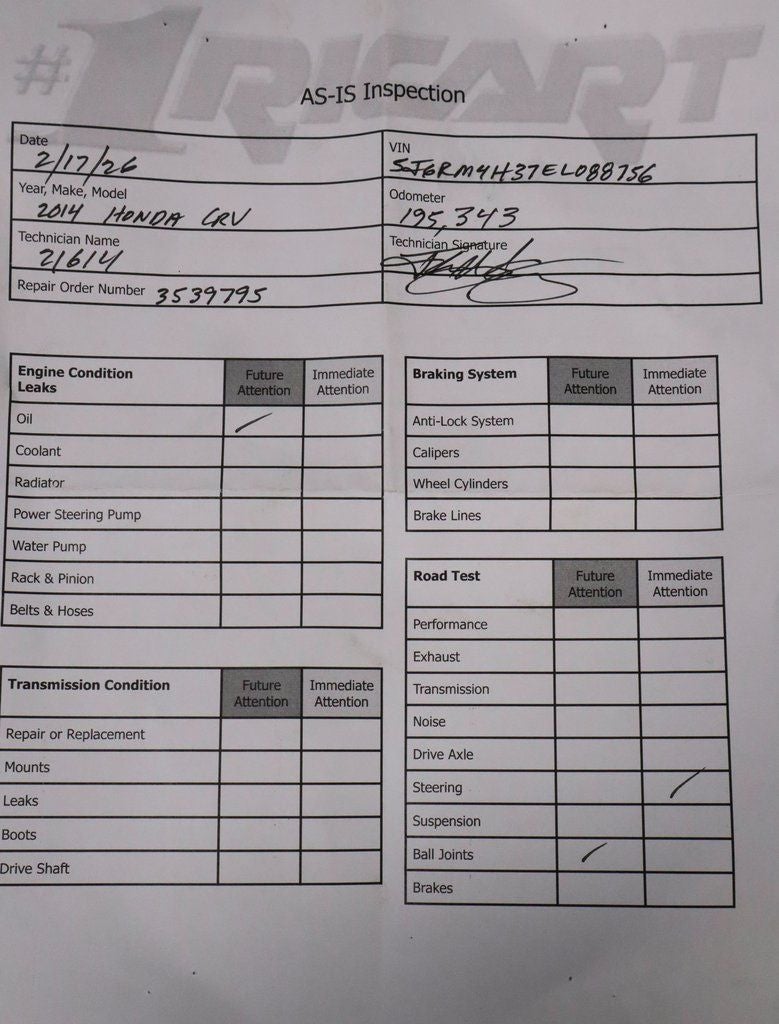 #1RICART
AS-IS Inspection
Date
2/17/26
VIN
5J6RM4H37EL088756
Year, Make, Model
2014 HONDA CRV
Odometer
195,343
Technician Name
21614
Technician Signature
Repair Order Number 3539795
Engine Condition
Leaks
Future
Attention
Immediate
Attention
Oil
Coolant
Radiator
Power Steering Pump
Water Pump
Rack & Pinion
Belts & Hoses
Transmission Condition
Future
Attention
Immediate
Attention
Repair or Replacement
Mounts
Leaks
Boots
Drive Shaft
Braking System
Future
Attention
Immediate
Attention
Anti-Lock System
Calipers
Wheel Cylinders
Brake Lines
Road Test
Future
Attention
Immediate
Attention
Performance
Exhaust
Transmission
Noise
Drive Axle
Steering
Suspension
Ball Joints
Brakes